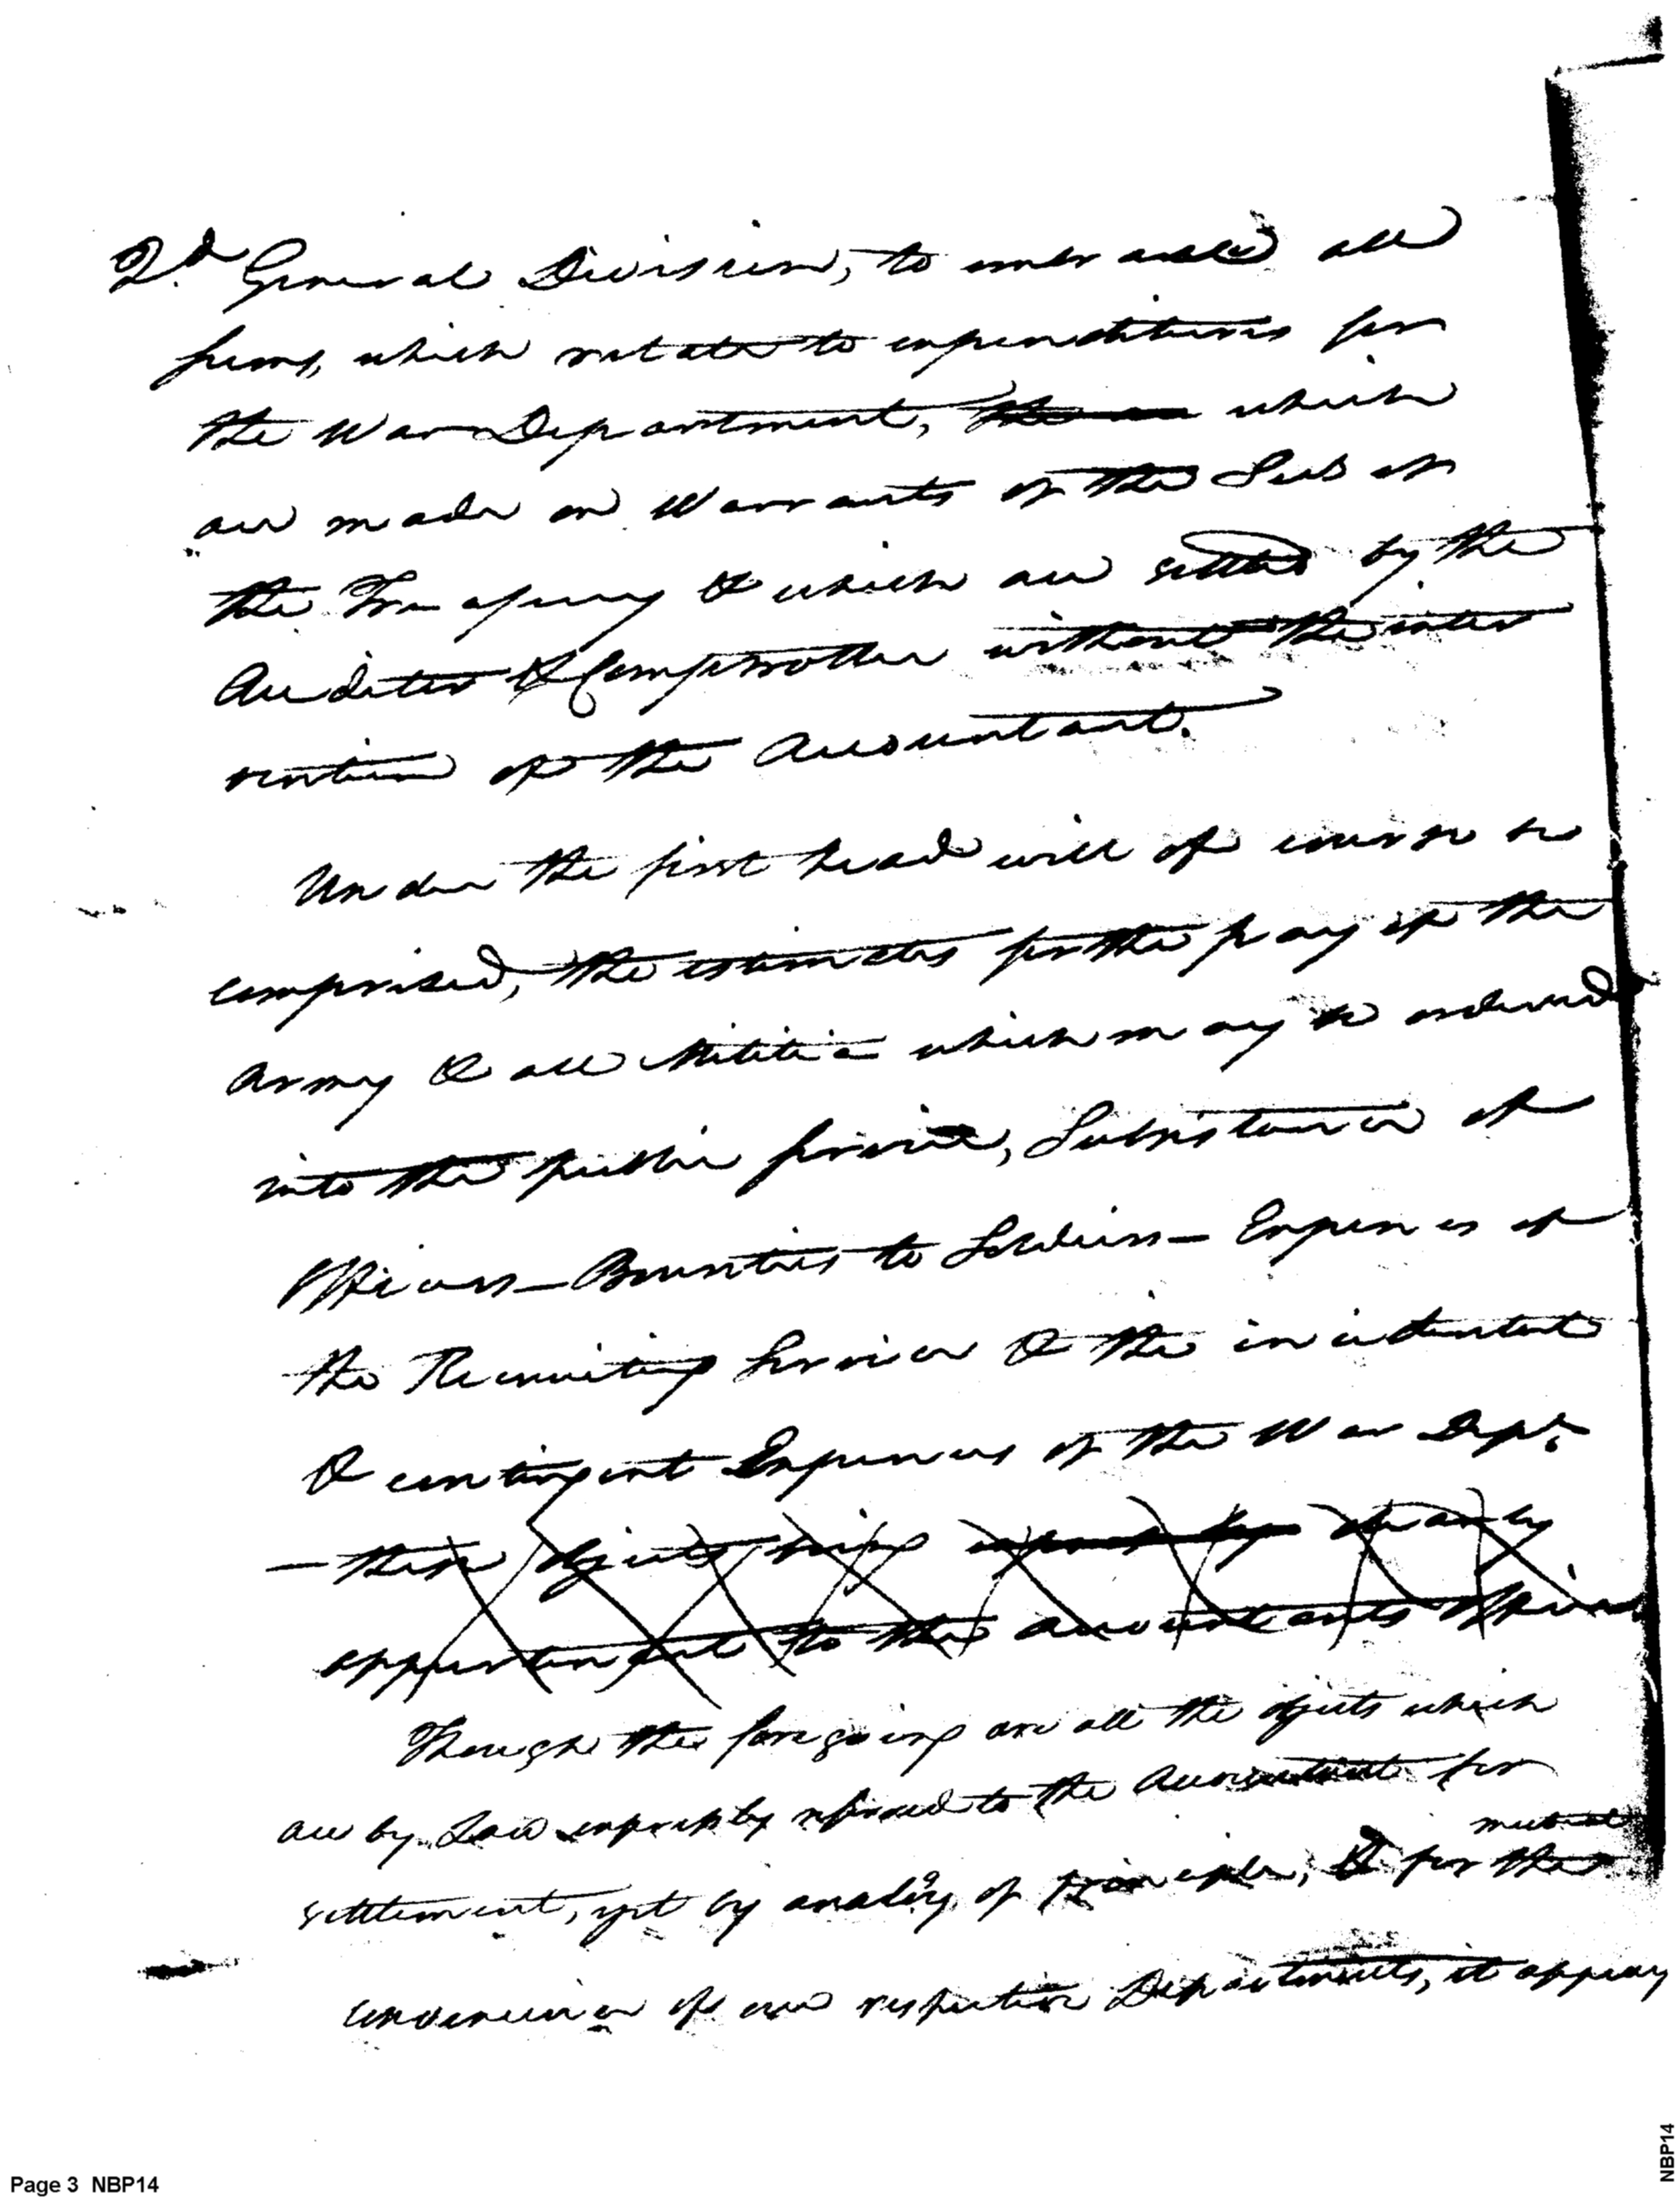 2.d General Division, to embrace all
sums, which relate to expenditures for
the War Department, which
are made on Warrants of the Sec of
the Treasury & which are settled by the
Auditor & Comptroller without the inter
vention of the Accountant.
Under the first head will of course be
comprised, the estimates for the pay of the
Army & all Militia which may be ordered
into the public service, Subsistence of
Officers – Bounties to Soldiers – Expenses of
the Recruiting Service & the incidental
& contingent Expences of the War Dept.
– these objects being expressly clearly
appurtenant to the Accountants Office
Though the foregoing are all the objects which
are by Law expressly referred to the Accountant for
mutual
settlement, yet by analogy of principle, & for the
convenience of our respective Departments, it appears
Page 3 NBP14
NBP14